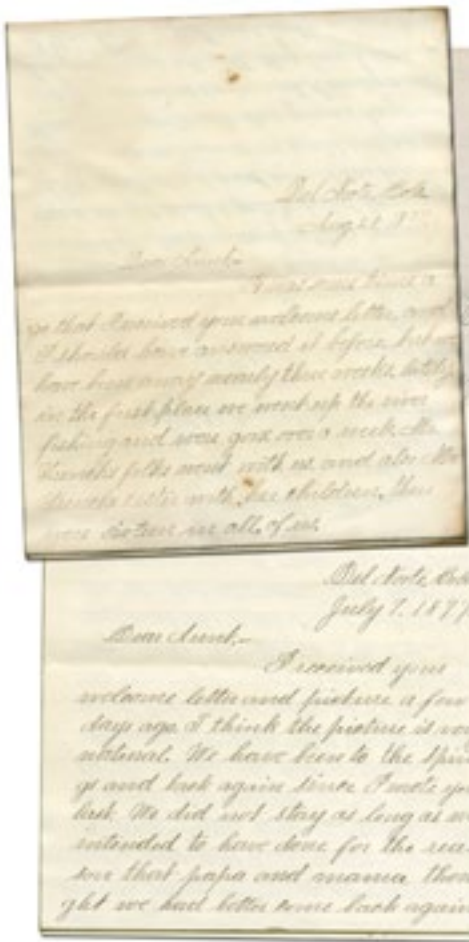 Del Norte, Colo.
Aug
Dear Aunt.-
It was some time a
go that I received your welcome letter, and
I should have answered it before, but we
have been away nearly three weeks, lately,
in the first place we went up the river
fishing and were gone over a week, Mr.
folks went with us and also Mrs
sister with her children, there
were sixteen in all, of us.
Del Norte, Colo
July 7. 187
Dear Aunt,-
I received your
welcome letter and picture a few
days ago. I think the picture is very
natural. We have been to the Sprin
gs and back again since I wrote you
last. We did not stay as long as we
intended to have done for the rea
son that papa and mama thou
ght we had better come back again